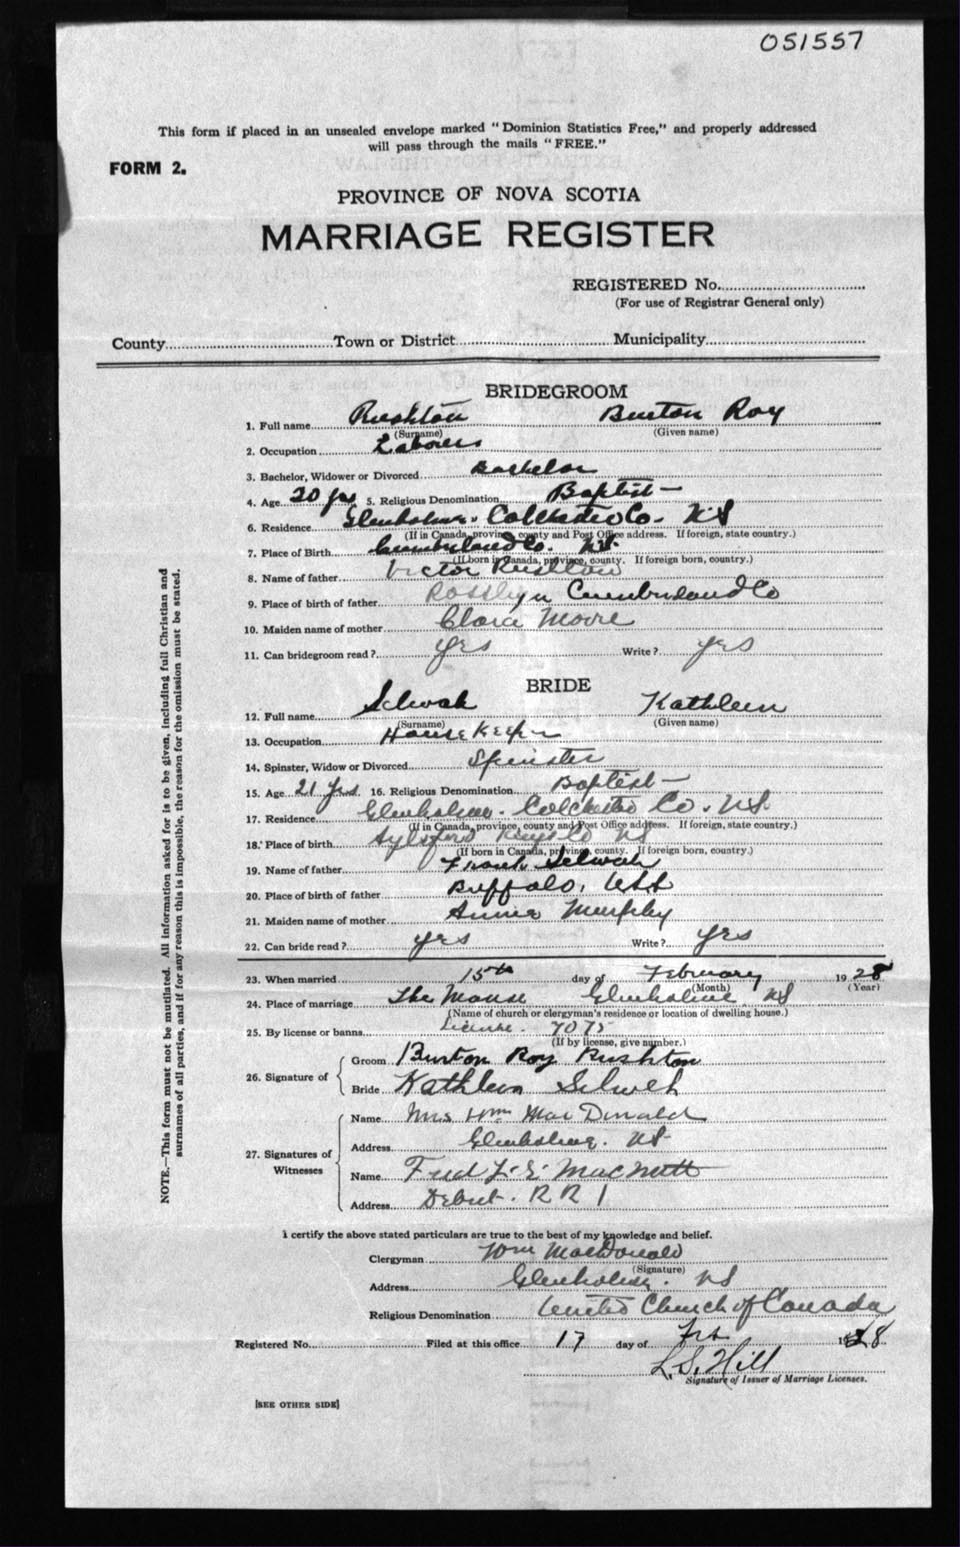 051557
This form if placed in an unsealed envelope marked "Dominion Statistics Free," and properly addressed
will pass through the mails "FREE."
FORM 2.
PROVINCE OF NOVA SCOTIA
MARRIAGE REGISTER
REGISTERED No.
(For use of Registrar General only)
County Town or District Municipality
BRIDEGROOM
1. Full name Rushton Burton Roy
(Surname) (Given name)
2. Occupation Laborer
3. Bachelor, Widower or Divorced Bachelor
4. Age 20 yrs 5. Religious Denomination Baptist
6. Residence Glenholme. Colchester Co. NS
(If in Canada, province, county and Post Office address. If foreign, state country.)
7. Place of Birth Cumberland Co. NS
(If born in Canada, province, county. If foreign born, country.)
8. Name of father Victor Rushton
9. Place of birth of father Rosslyn Cumberland Co
10. Maiden name of mother Clara Moore
11. Can bridegroom read? yes Write? yes
BRIDE
12. Full name Selwah Kathleen
(Surname) (Given name)
13. Occupation House Keeper
14. Spinster, Widow or Divorced Spinster
15. Age 21 yrs 16. Religious Denomination Baptist
17. Residence Glenholme. Colchester Co. NS.
(If in Canada, province, county and Post Office address. If foreign, state country.)
18. Place of birth Aylsford Kings Co NS
(If born in Canada, province, county. If foreign born, country.)
19. Name of father Frank Selwah
20. Place of birth of father Buffalo, USA
21. Maiden name of mother Annie Murphy
22. Can bride read? yes Write? yes
23. When married 15th day of February 1928
(Month) (Year)
24. Place of marriage The Manse Glenholme NS
(Name of church or clergyman's residence or location of dwelling house.)
25. By license or banns License. 7075
(If by license, give number.)
26. Signature of Groom Burton Roy Rushton
Bride Kathleen Selweh
27. Signatures of Witnesses Name Mrs Wm MacDonald
Address Glenholme. NS
Name Fred MacNutt
Address Debert. R R 1
I certify the above stated particulars are true to the best of my knowledge and belief.
Clergyman Wm MacDonald
(Signature)
Address Glenholme. NS
Religious Denomination United Church of Canada
Registered No. Filed at this office 17 day of Feb 1928
L. S. Hill
Signature of Issuer of Marriage Licenses.
[SEE OTHER SIDE]
NOTE.—This form must not be mutilated. All information asked for is to be given, including full Christian and
surnames of all parties, and if for any reason this is impossible, the reason for the omission must be stated.